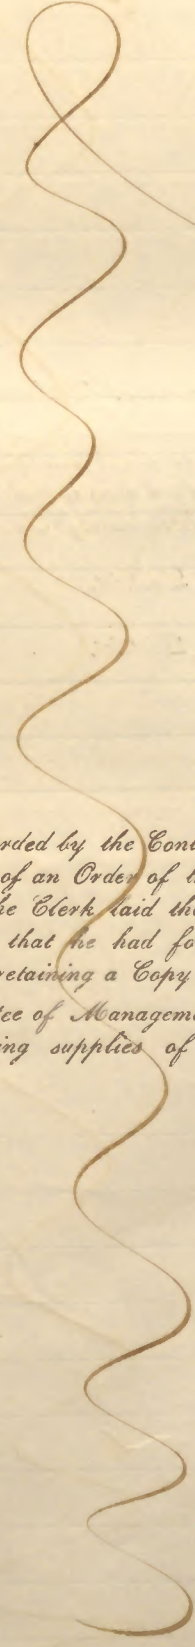 rded by the Cont
of an Order of t
he Clerk laid th
that he had fo
retaining a Copy
tee of Manageme
ing supplies of